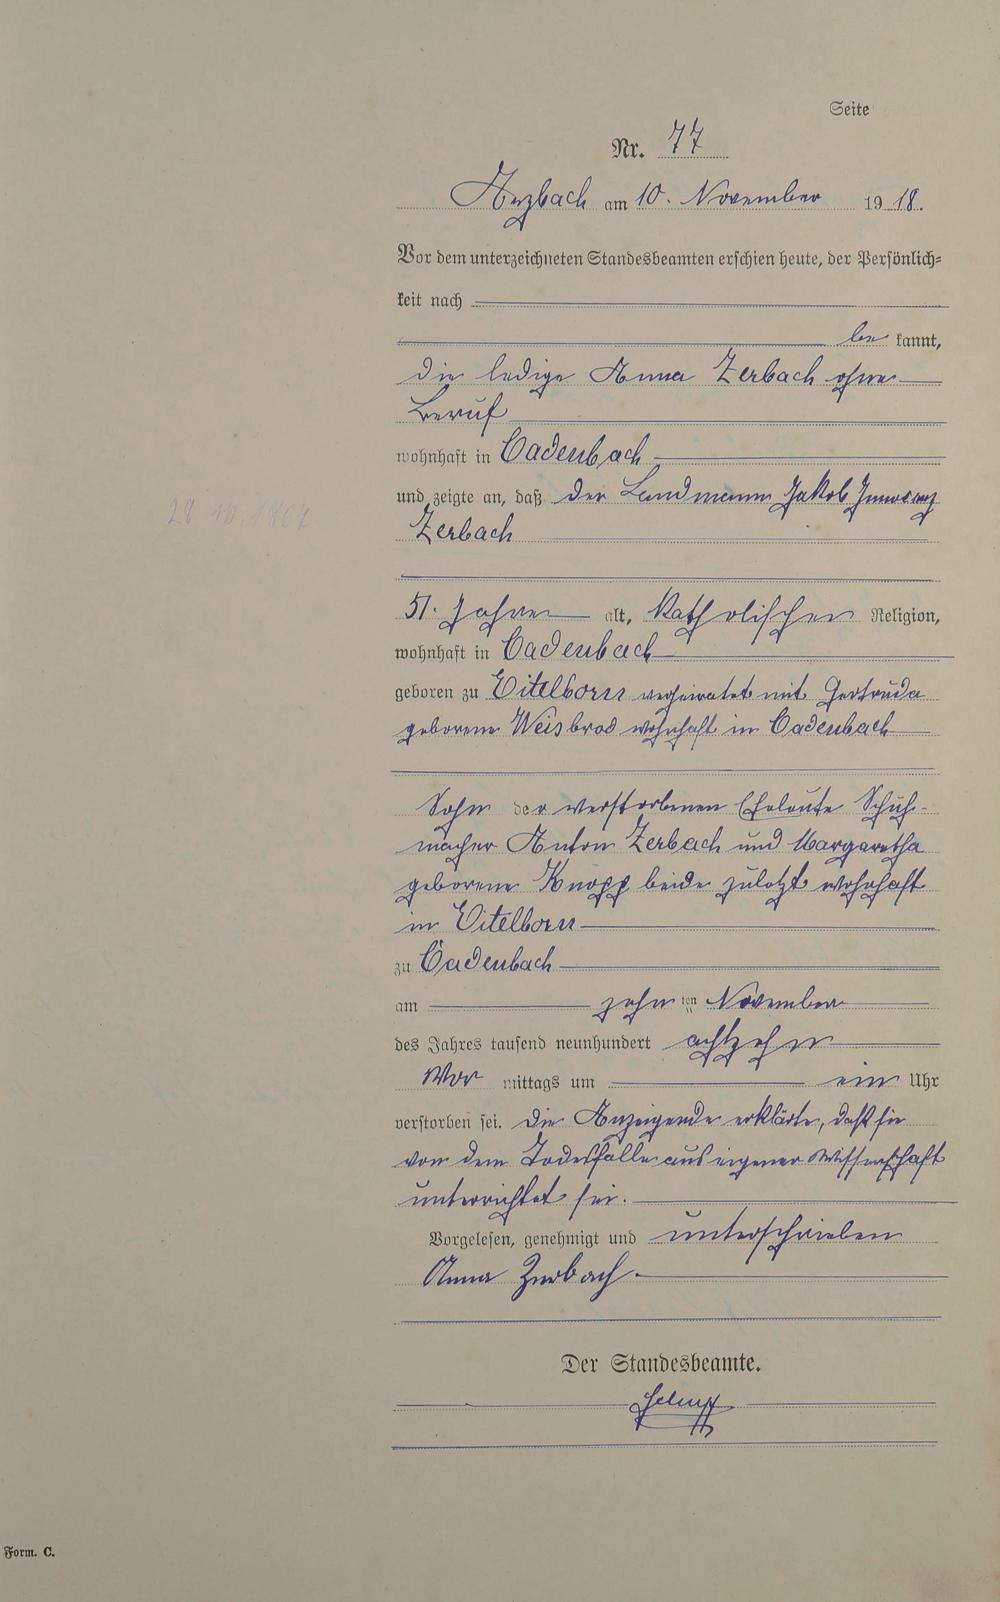 Seite
Nr. 77
Arzbach am 10. November 1918.
Vor dem unterzeichneten Standesbeamten erschien heute, der Persönlich=
keit nach
be kannt,
die ledige Anna Zerbach ohne
Beruf
wohnhaft in Cadenbach
und zeigte an, daß der Landmann Jakob
Zerbach
28 10. 1867
51. Jahre alt, katholischer Religion,
wohnhaft in Cadenbach
geboren zu Eitelborn verheiratet mit Gertruda
geborene Weisbrod wohnhaft in Cadenbach
Sohn der verstorbenen Eheleute Schuh-
macher Anton Zerbach und Margaretha
geborene Knopp beide zuletzt wohnhaft
in Eitelborn
zu Cadenbach
am zehnten November
des Jahres tausend neunhundert achtzehn
Vor mittags um ein Uhr
verstorben sei. Die Anzeigende erklärte, daß sie
von dem Todesfalle aus eigener Wissenschaft
unterrichtet sei.
Vorgelesen, genehmigt und unterschrieben
Anna Zerbach.
Der Standesbeamte.
Form. C.